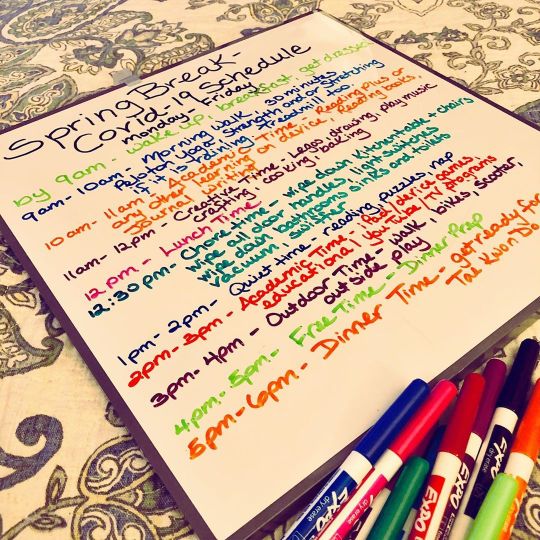 Spring Break -
Covid-19 Schedule
Monday - Friday
by 9am - wake up, breakfast, get dressed
9am - 10am - Morning Walk, 30 minutes
Yoga Strength and/or Stretching
if it is raining - Treadmill too
10am - 11am - Academic Time - Reading Plus or
any other Learning on device, Reading books,
Journal writing
11am - 12pm - Creative Time - Legos, drawing, play music
crafting, cooking, baking
12pm - Lunch Time
12:30pm - Chore time - wipe down Kitchen table + chairs
wipe all door handles, light switches
wipe down bathrooms sinks and toilets
vacuum, swiffer
1pm - 2pm - Quiet time - reading, puzzles, nap
2pm - 3pm - Academic Time - iPad/device games
educational YouTube/TV programs
3pm - 4pm - Outdoor Time - walk, bikes, scooter,
outside play
4pm - 5pm - Free Time - Dinner Prep
5pm - 6pm - Dinner Time - get ready for
Tae Kwon Do
EXPO
dry erase
EXPO
dry erase
EXPO
EXPO
EXPO